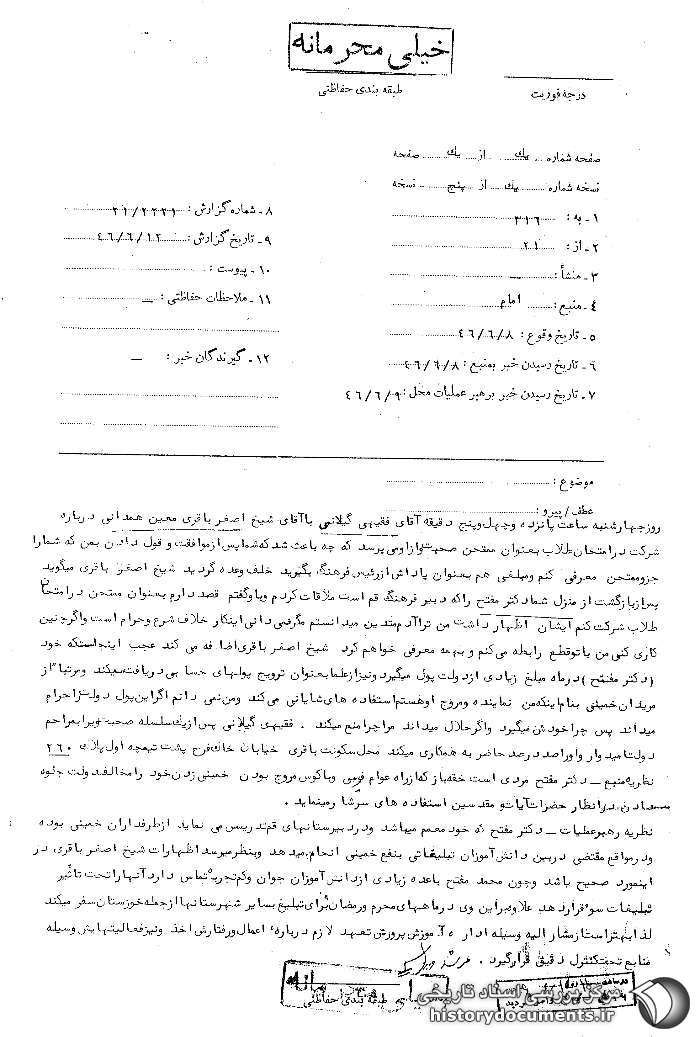 خیلی محرمانه
درجه فوریت
طبقه بندی حفاظتی
صفحه شماره یک از یک صفحه
نسخه شماره یک از پنج نسخه
۱ - به : ۳۱۶
۲ - از : ۲۱
۳ - منشأ : —
۴ - منبع : امام
۵ - تاریخ وقوع : ۴۶/۶/۸
۶ - تاریخ رسیدن خبر بمنبع : ۴۶/۶/۸
۷ - تاریخ رسیدن خبر برهبر عملیات محل : ۴۶/۶/۹
۸ - شماره گزارش : ۲۱/۲۲۲۱
۹ - تاریخ گزارش : ۴۶/۶/۱۲
۱۰ - پیوست :
۱۱ - ملاحظات حفاظتی : —
۱۲ - گیرندگان خبر : —
موضوع :
عطف / پیرو :
روز چهارشنبه ساعت پانزده وچهل وپنج دقیقه آقای فقیهی گیلانی باآقای شیخ اصغر باقری معین همدانی درباره
شرکت درامتحان طلاب بعنوان ممتحن صحبت وازاومی پرسد که چه باعث شد که شماپس ازموافقت و قول دادن بمن که شمارا
جزوممتحن معرفی کنم ومبلغی هم بعنوان پاداش ازرئیس فرهنگ بگیرید خلف وعده گردید شیخ اصغر باقری میگوید
پس ازبازگشت از منزل شما دکتر مفتح راکه دبیر فرهنگ قم است ملاقات کردم وباوگفتم قصد دارم بعنوان ممتحن درامتحان
طلاب شرکت کنم ایشان اظهار داشت من تراآدم متدین میدانستم مگرنمی دانی اینکار خلاف شرع وحرام است واگرچنین
کاری کنی من باتوقطع رابطه می کنم و بهمه معرفی خواهم کرد شیخ اصغر باقری اضافه می کند عجب اینجاستکه خود
(دکتر مفتح) درماه مبلغ زیادی ازدولت پول میگیرد ونیزازعلما بعنوان ترویج پولهای حسابی دریافت میکند ومرتبا از
مریدان خمینی بنام اینکه من نماینده ومروج اوهستم استفاده های شایانی می کند ومن نمی دانم اگراین پول دولت را حرام
میداند پس چراخودش میگیرد واگرحلال میداند مراچرامنع میکند . فقیهی گیلانی پس ازیک سلسله صحبت ویرابمراحم
دولت امیدوار واوراصد درصد حاضر به همکاری میکند محل سکونت باقری خیابان خاک فرج پشت تیمچه اول پلاک ۲۶۰
نظریه منبع - دکتر مفتح مردی است حقه باز که ازراه عوام فریبی وباکوس مروج بودن خمینی زدن خود را مخالف دولت جلوه
دادن درانظار حضرات آیات و مقدسین استفاده های سرشار مینماید .
نظریه رهبرعملیات - دکتر مفتح که خود معمم میباشد ودردبیرستانهای قم تدریس می نماید ازطرفداران خمینی بوده
ودرمواقع مقتضی دربین دانش آموزان تبلیغاتی بنفع خمینی انجام میدهد وبنظرمیرسد اظهارات شیخ اصغر باقری در
اینمورد صحیح باشد وچون محمد مفتح باعده زیادی ازدانش آموزان جوان وکم تجربه تماس دارد آنهاراتحت تاثیر
تبلیغات سوء قرار دهد علاوه براین وی درماههای محرم ورمضان برای تبلیغ بسایر شهرستانها ازجمله خوزستان سفر میکند
لذا بهتراست از مشارالیه وسیله اداره آموزش پرورش تعهد لازم درباره اعمال ورفتارش اخذ ونیز فعالیتهایش وسیله
منابع تحت کنترل دقیق قرارگیرد .
طبقه بندی حفاظتی
مرکز بررسی اسناد تاریخی
historydocuments.ir